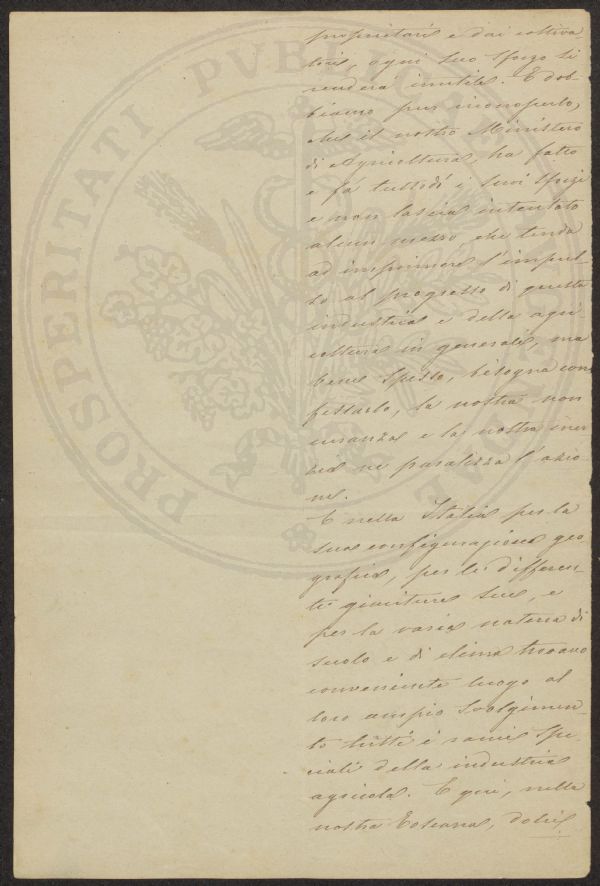 proprietari e dai coltiva-
tori, ogni suo sforzo si
renderà inutile. E dob-
biamo pur riconoscerlo,
che il nostro Ministero
di Agricoltura, ha fatto
e fà tuttodì i suoi sforzi
e non lascia intentato
alcun mezzo, che tenda
ad imprimere l'impul-
so al progresso di questa
industria e della agri-
coltura in generale, ma
bene spesso, bisogna con
fessarlo, la nostra non
curanza e la nostra iner
zia ne paralizza l'azio
ne.
E nella Italia per la
sua configurazione geo-
grafica, per le differen-
ti giaciture sue, e
per la varia natura di
suolo e di clima trovano
conveniente luogo al
loro ampio svolgimen-
to tutti i rami spe-
ciali della industria
agricola. E qui, nella
nostra Toscana, dolci
PROSPERITATI PVBLICAE